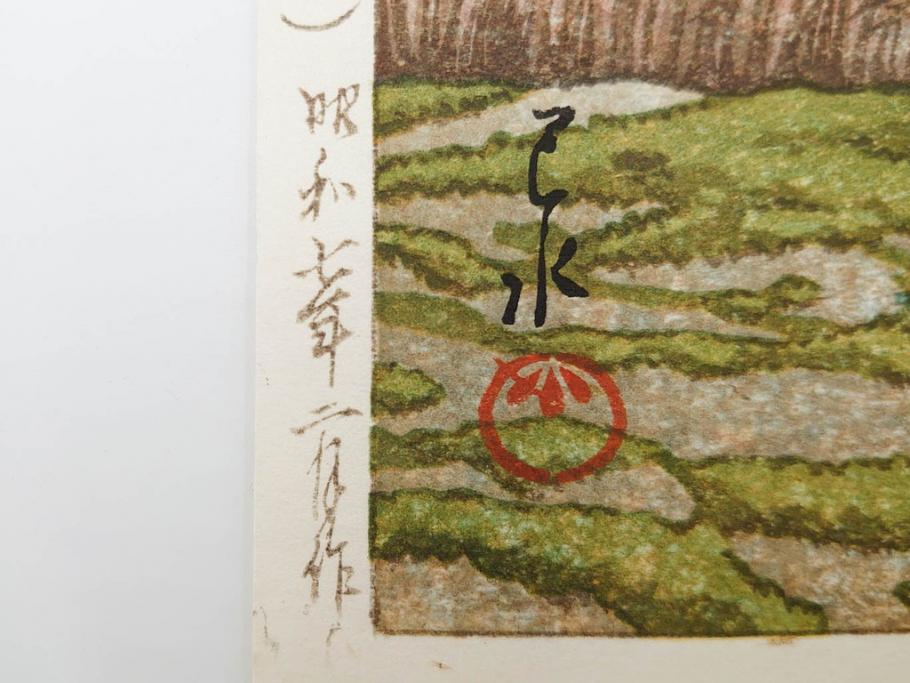 ）昭和七年二月作
巴水